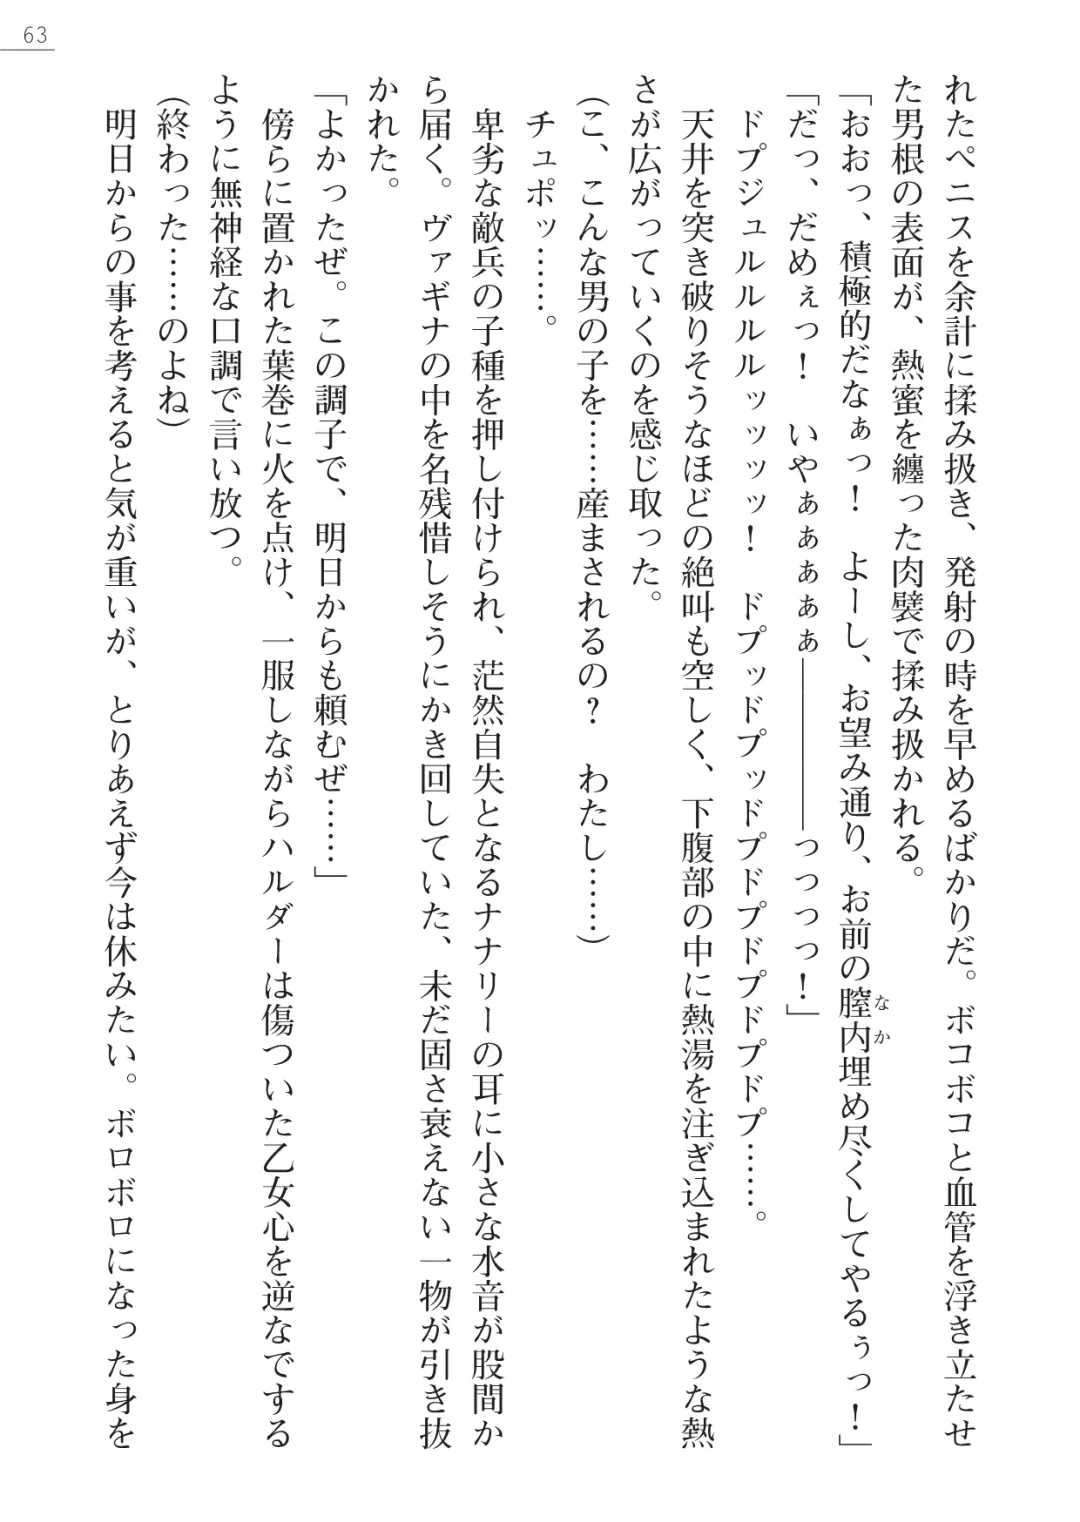 63
れたペニスを余計に揉み扱き、発射の時を早めるばかりだ。ボコボコと血管を浮き立たせ
た男根の表面が、熱蜜を纏った肉襞で揉み扱かれる。
「おおっ、積極的だなぁっ！　よーし、お望み通り、お前の膣内埋め尽くしてやるぅっ！」
なか
「だっ、だめぇっ！　いやぁぁぁぁぁ――――――っっっっ！」
ドプジュルルルルッッッッ！　ドプッドプッドプドプドプドプドプ……。
天井を突き破りそうなほどの絶叫も空しく、下腹部の中に熱湯を注ぎ込まれたような熱
さが広がっていくのを感じ取った。
(こ、こんな男の子を……産まされるの？　わたし……)
チュポッ……。
卑劣な敵兵の子種を押し付けられ、茫然自失となるナナリーの耳に小さな水音が股間か
ら届く。ヴァギナの中を名残惜しそうにかき回していた、未だ固さ衰えない一物が引き抜
かれた。
「よかったぜ。この調子で、明日からも頼むぜ……」
傍らに置かれた葉巻に火を点け、一服しながらハルダーは傷ついた乙女心を逆なでする
ように無神経な口調で言い放つ。
(終わった……のよね)
明日からの事を考えると気が重いが、とりあえず今は休みたい。ボロボロになった身を